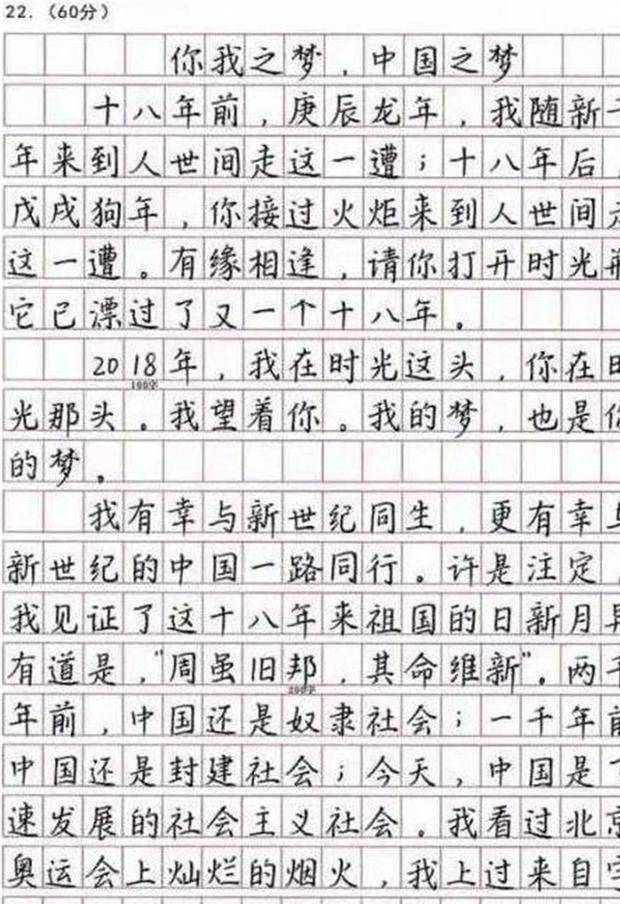 22.（60分）
你我之梦，中国之梦
十八年前，庚辰龙年，我随新千
年来到人世间走这一遭；十八年后，
戊戌狗年，你接过火炬来到人世间走
这一遭。有缘相逢，请你打开时光瓶
它已漂过了又一个十八年。
2018年，我在时光这头，你在时
100字
光那头。我望着你。我的梦，也是你
的梦。
我有幸与新世纪同生，更有幸与
新世纪的中国一路同行。许是注定，
我见证了这十八年来祖国的日新月异
有道是，"周虽旧邦，其命维新"。两千
200字
年前，中国还是奴隶社会；一千年前
中国还是封建社会；今天，中国是
速发展的社会主义社会。我看过北京
奥运会上灿烂的烟火，我上过来自